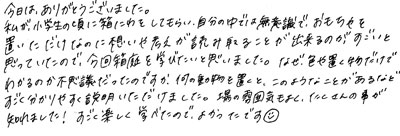 今日は、ありがとうございました。
私が小学生の頃に箱にわをしてもらい、自分の中では無意識でおもちゃを
置いただけなのに想いや考えが読み取ることが出来るのがすごいと
思っていたので、今回箱庭を学びたいと思いました。なぜ色や置く物だけで
わかるのか不思議だったのですが、何の動物を置くと、このようなことがあるなど
すごく分かりやすく説明いただけました。場の雰囲気もよく、たくさんの事が
知れました！すごく楽しく学べたので、よかったです☺